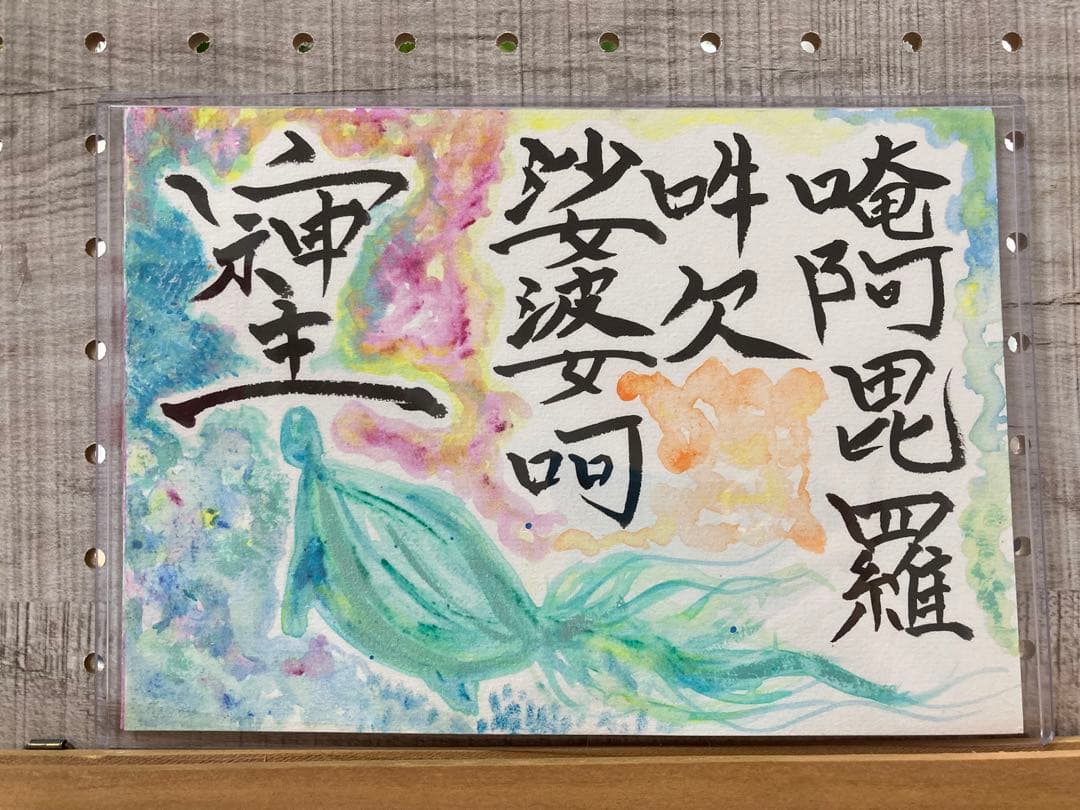 唵阿毘羅
吽欠
娑婆呵